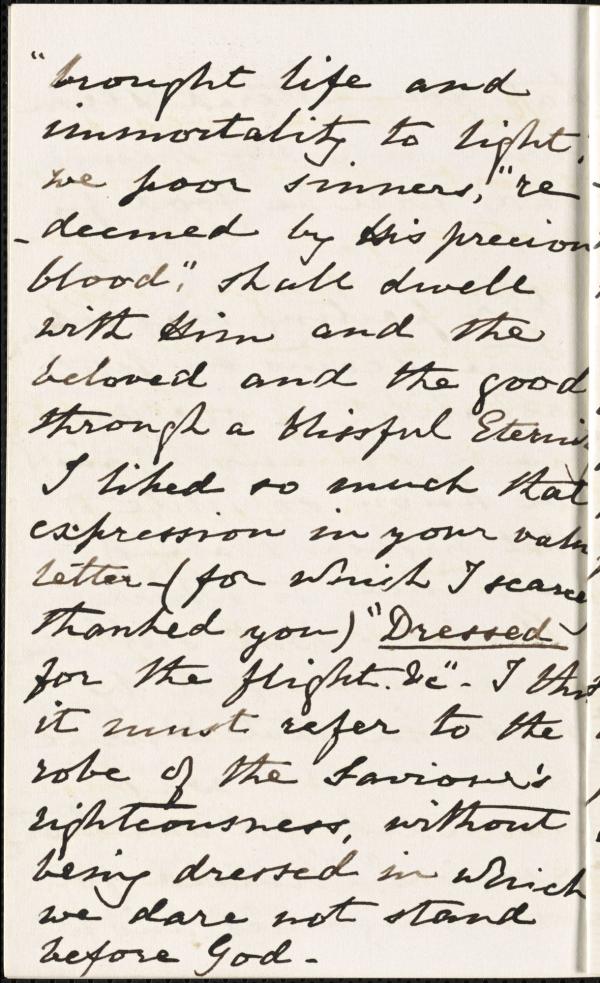 "brought life and
immortality to light,"
we poor sinners, "re
-deemed by His precious
blood", shall dwell
with Him and the
beloved and the good
through a blissful Eterni
I liked so much that
expression in your valu
letter - (for which I scarce
thanked you) "Dressed
for the flight. &c" - I thi
it must refer to the
robe of the Saviour's
righteousness, without
being dressed in which
we dare not stand
before God -